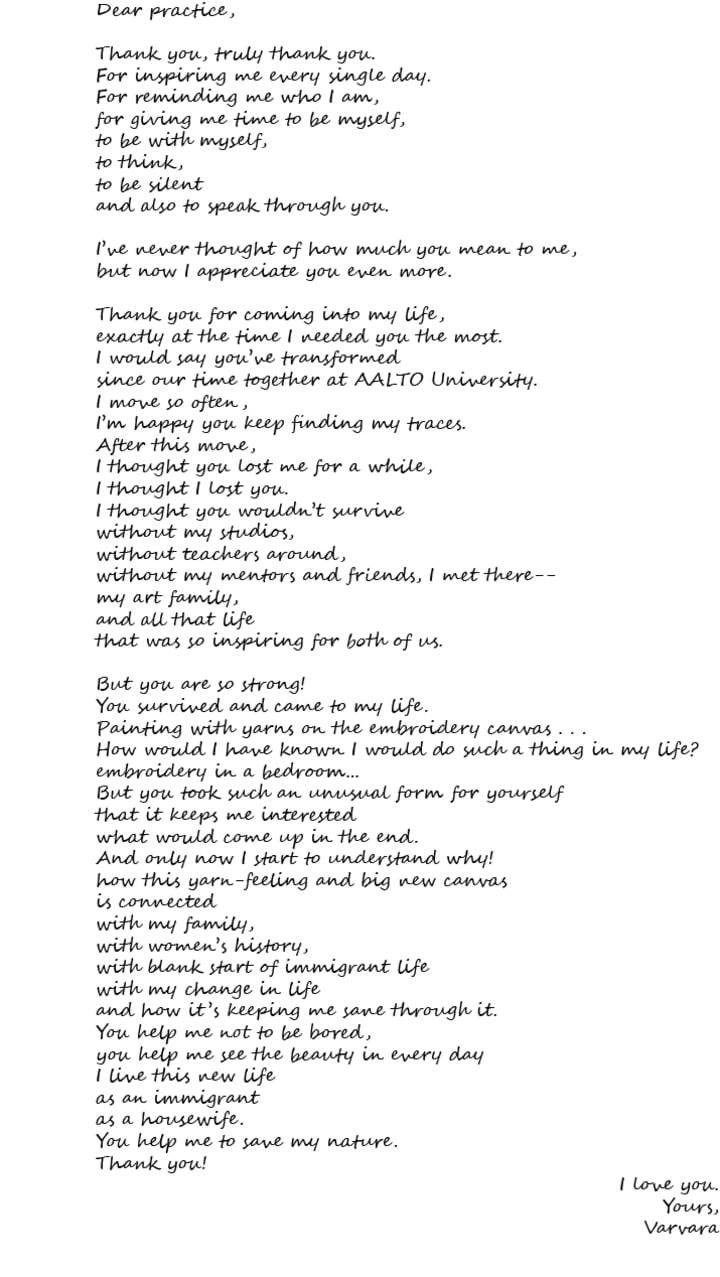 Dear practice,
Thank you, truly thank you.
For inspiring me every single day.
For reminding me who I am,
for giving me time to be myself,
to be with myself,
to think,
to be silent
and also to speak through you.
I've never thought of how much you mean to me,
but now I appreciate you even more.
Thank you for coming into my life,
exactly at the time I needed you the most.
I would say you've transformed
since our time together at AALTO University.
I move so often,
I'm happy you keep finding my traces.
After this move,
I thought you lost me for a while,
I thought I lost you.
I thought you wouldn't survive
without my studios,
without teachers around,
without my mentors and friends, I met there--
my art family,
and all that life
that was so inspiring for both of us.
But you are so strong!
You survived and came to my life.
Painting with yarns on the embroidery canvas . . .
How would I have known I would do such a thing in my life?
embroidery in a bedroom...
But you took such an unusual form for yourself
that it keeps me interested
what would come up in the end.
And only now I start to understand why!
how this yarn-feeling and big new canvas
is connected
with my family,
with women's history,
with blank start of immigrant life
with my change in life
and how it's keeping me sane through it.
You help me not to be bored,
you help me see the beauty in every day
I live this new life
as an immigrant
as a housewife.
You help me to save my nature.
Thank you!
I love you.
Yours,
Varvara